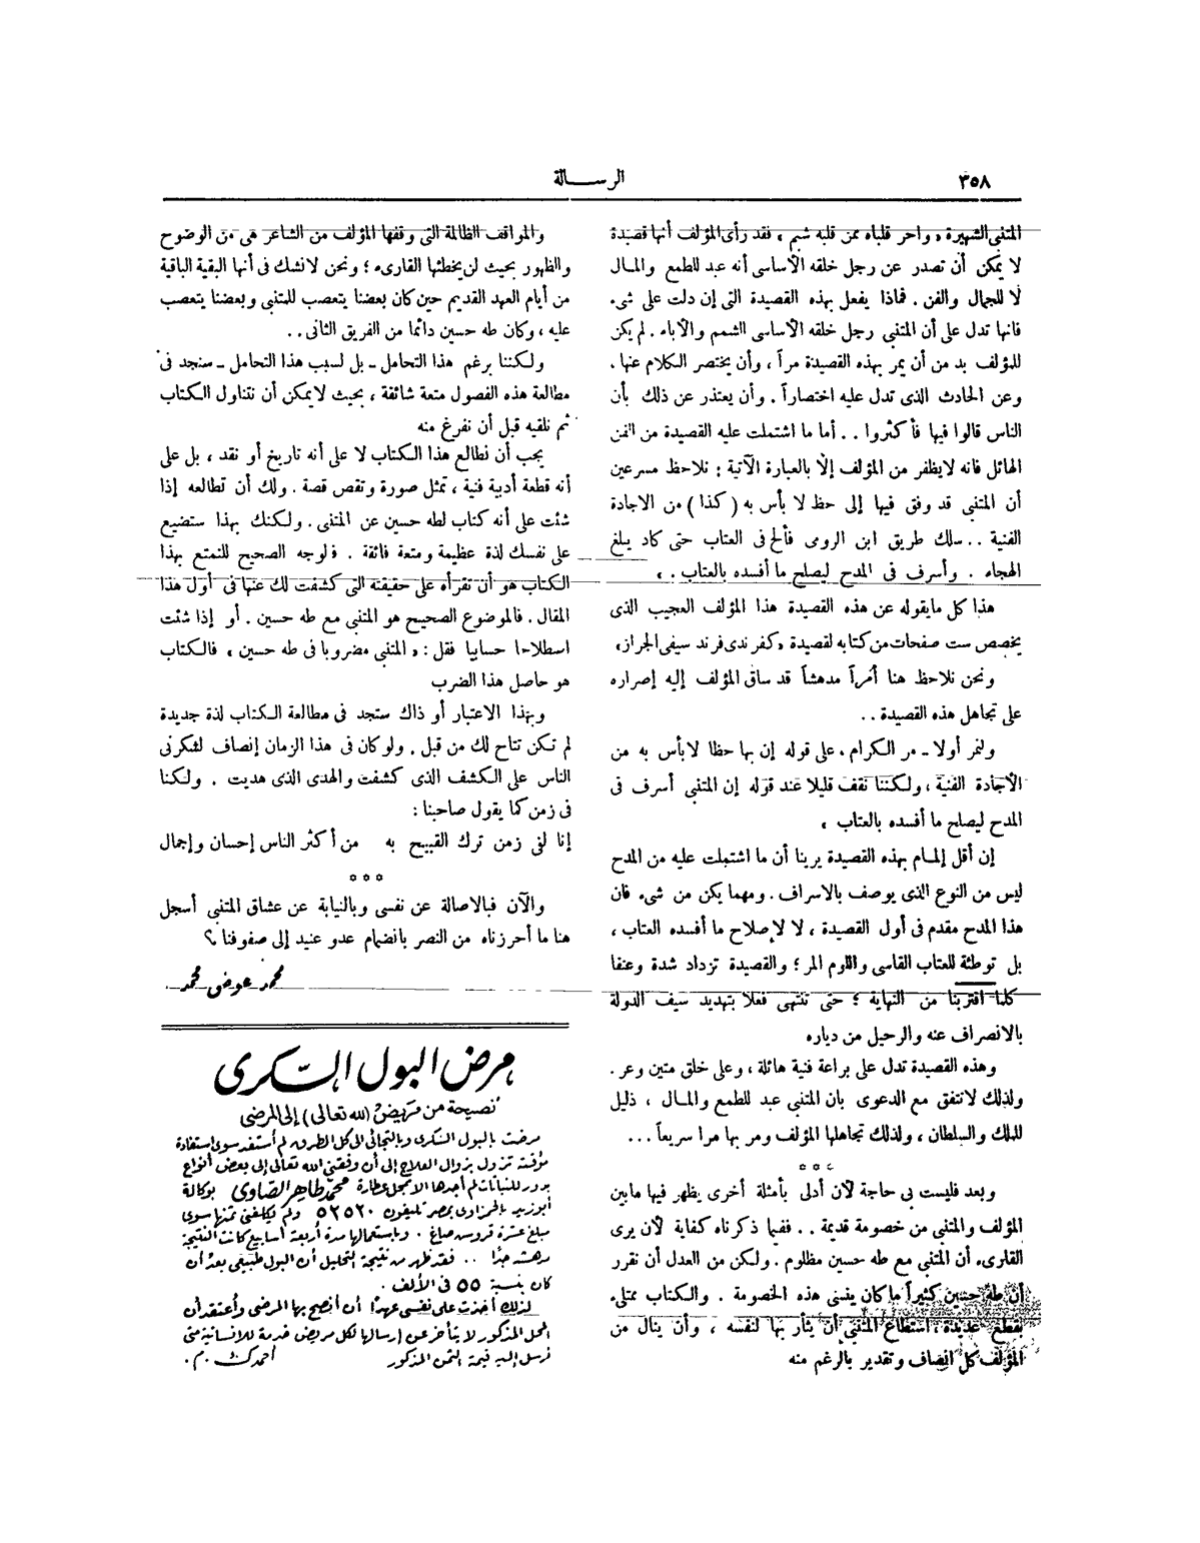 ٣٥٨
الرسالة
المتنبى الشهيرة «واحر قلباه ممن قلبه شبم» فقد رأى المؤلف أنها قصيدة
لا يمكن أن تصدر عن رجل خلقه الأساسى أنه عبد للطمع والمال
لا للجمال والفن . فماذا يفعل بهذه القصيدة التى إن دلت على شىء
فانها تدل على أن المتنبى رجل خلقه الأساسى الشمم والأباء . لم يكن
للمؤلف بد من أن يمر بهذه القصيدة مراً ، وأن يختصر الكلام عنها .
وعن الحادث الذى تدل عليه اختصاراً . وأن يعتذر عن ذلك بأن
الناس قالوا فيها فأكثروا .. أما ما اشتملت عليه القصيدة من الفن
الهائل فانه لايظفر من المؤلف إلّا بالعبارة الآتية : نلاحظ مسرعين
أن المتنبى قد وفق فيها إلى حظ لا بأس به ( كذا ) من الاجادة
الفنية .. سلك طريق ابن الرومى فألح فى العتاب حتى كاد يبلغ
الهجاء . وأسرف فى المدح ليصلح ما أفسده بالعتاب . »
هذا كل مايقوله عن هذه القصيدة هذا المؤلف العجيب الذى
يخصص ست صفحات من كتابه لقصيدة «كفرندى فرند سيفى الجراز»
ونحن نلاحظ هنا أمراً مدهشاً قد ساق المؤلف إليه إصراره
على تجاهل هذه القصيدة ..
ولنمر أولا ـ مر الكرام ، على قوله إن بها حظا لابأس به من
الأجادة الفنية ، ولكننا نقف قليلا عند قوله إن المتنبى أسرف فى
المدح ليصلح ما أفسده بالعتاب »
إن أقل إلمام بهذه القصيدة يرينا أن ما اشتملت عليه من المدح
ليس من النوع الذى يوصف بالاسراف . ومهما يكن من شىء فان
هذا المدح مقدم فى أول القصيدة ، لا لإصلاح ما أفسده العتاب ،
بل توطئة للعتاب القاسى واللوم المر ؛ والقصيدة تزداد شدة وعنفا
كلما اقتربنا من النهاية ؛ حتى تنتهى فعلا بتهديد سيف الدولة
بالانصراف عنه والرحيل من دياره
وهذه القصيدة تدل على براعة فنية هائلة ، وعلى خلق متين وعر .
ولذلك لاتتفق مع الدعوى بان المتنبى عبد للطمع والمال ، ذليل
للملك والسلطان ، ولذلك تجاهلها المؤلف ومر بها مرا سريعاً ...
٥ ٥ ٥
وبعد فليست بى حاجة لأن أدلى بأمثلة أخرى يظهر فيها مابين
المؤلف والمتنبى من خصومة قديمة .. ففيما ذكرناه كفاية لأن يرى
القارىء أن المتنبى مع طه حسين مظلوم . ولكن من العدل أن نقرر
أن طه حسين كثيراً ما كان ينسى هذه الخصومة . والكتاب ممتلىء
بقطع عديدة ، استطاع المتنبى أن يثأر بها لنفسه ، وأن ينال من
المؤلف كل انصاف وتقدير بالرغم منه
والمواقف الظالمة التى وقفها المؤلف من الشاعر هى من الوضوح
والظهور بحيث لن يخطئها القارىء ؛ ونحن لانشك فى أنها البقية الباقية
من أيام العهد القديم حين كان بعضنا يتعصب للمتنبى وبعضنا يتعصب
عليه ، وكان طه حسين دائما من الفريق الثانى ..
ولكننا برغم هذا التحامل ـ بل لسبب هذا التحامل ـ سنجد فى
مطالعة هذه الفصول متعة شائقة ، بحيث لايمكن أن نتناول الكتاب
ثم نلقيه قبل أن نفرغ منه
يجب أن نطالع هذا الكتاب لا على أنه تاريخ أو نقد ، بل على
أنه قطعة أدبية فنية ، تمثل صورة وتقص قصة . ولك أن تطالعه إذا
شئت على أنه كتاب لطه حسين عن المتنبى . ولكنك بهذا ستضيع
على نفسك لذة عظيمة ومتعة فائقة . فلوجه الصحيح للتمتع بهذا
الكتاب هو أن تقرأه على حقيقته التى كشفت لك عنها فى أول هذا
المقال . فالموضوع الصحيح هو المتنبى مع طه حسين . أو إذا شئت
اسطلاحا حسابيا فقل : « المتنبى مضروبا فى طه حسين » فالكتاب
هو حاصل هذا الضرب
وبهذا الاعتبار أو ذاك ستجد فى مطالعة الكتاب لذة جديدة
لم تكن تتاح لك من قبل . ولو كان فى هذا الزمان إنصاف لشكرنى
الناس على الكشف الذى كشفت والهدى الذى هديت . ولكنا
فى زمن كما يقول صاحبنا :
إنا لفى زمن ترك القبيح به من أكثر الناس إحسان وإجمال
٥ ٥ ٥
والآن فبالاصالة عن نفسى وبالنيابة عن عشاق المتنبى أسجل
هنا ما أحرزناه من النصر بانضمام عدو عنيد إلى صفوفنا ؟
محمد عوض محمد
مرض البول السكرى
نصيحة من مريض (لله تعالى) إلى المرضى
مرضت بالبول السكرى وبالتجائى الى كل الطرق لم أستفد سوى استفادة
مؤقتة تزول بزوال العلاج إلى أن وفقنى الله تعالى إلى بعض أنواع
بذور للنباتات لم أجدها الا بمحل عطارة محمد طاهر الصاوى بوكالة
أبوزيد بالحمزاوى بمصر تليفون ٥٢٥٢٠ ولم يكلفنى ثمنها سوى
مبلغ عشرة قروش صاغ . وباستعمالها مدة أربعة أسابيع كانت النتيجة
مدهشة جدًا .. فقد ظهر من نتيجة التحليل أن البول طبيعى بعد أن
كان بنسبة ٥٥ فى الألف .
لذلك أخذت على نفسى عهدًا أن أنصح بها المرضى وأعتقد أن
المحل المذكور لا يتأخر عن إرسالها لكل مريض خدمة للانسانية متى
أرسل إليه قيمة الثمن المذكور
أحمد ك . م .